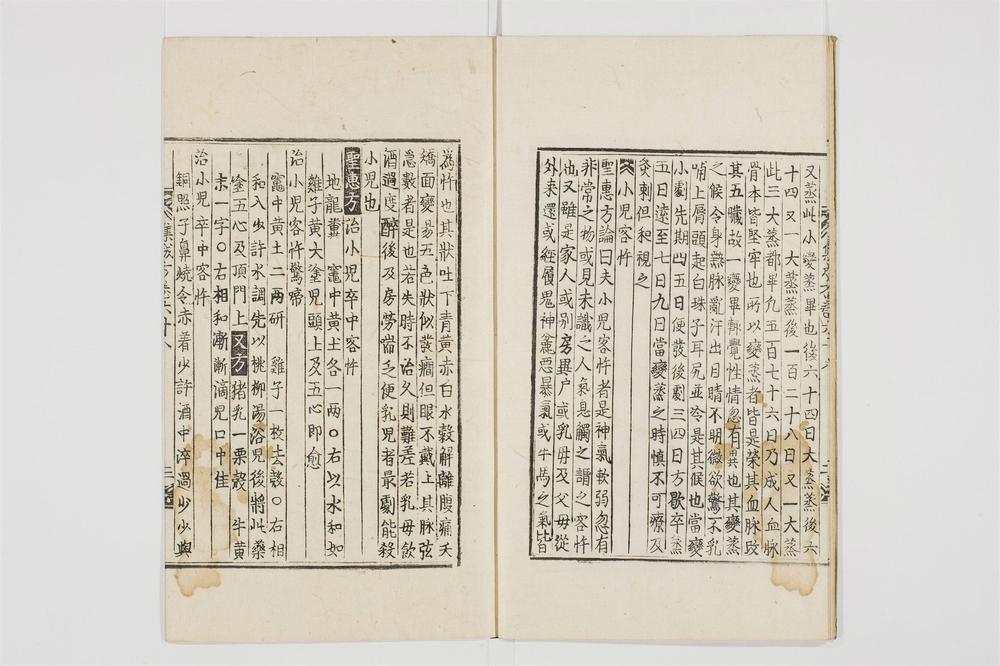 又蒸此小變蒸畢也後六十四日大蒸蒸後六
十四又一大蒸蒸後一百二十八日又一大蒸
此三大蒸都畢凡五百七十六日乃成人血脉
骨本皆堅牢也所以變蒸者皆是榮其血脉改
其五臟故一變畢輙覺性情忽有異也其變蒸
之候令身熱脉亂汗出目睛不明微欲驚不乳
哺上脣頭起白珠子耳尻並冷是其候也當變
小劇先期四五日便發後劇三四日方歇卒蒸
五日遠至七日九日當變蒸之時慎不可療及
灸刺但和視之
小兒客忤
聖惠方論曰夫小兒客忤者是神氣軟弱忽有
非常之物或見未識之人氣息觸之謂之客忤
也又雖是家人或別房異户或乳母及父母從
外来還或經履鬼神麁惡暴氣或牛馬之氣皆
為忤也其狀吐下青黄赤白水穀解離腹痛夭
矯面變易五色狀似發癎但眼不戴上其脉弦
急數者是也若失時不治久則難差若乳母飲
酒過度醉後及房勞喘乏便乳兒者最劇能殺
小兒也
聖惠方 治小兒卒中客忤
地龍糞 竈中黄土各一兩○右以水和如
雞子黄大塗兒頭上及五心即愈
治小兒客忤驚啼
竈中黄土二兩研 雞子一枚去殼○右相
和入少許水調先以桃柳湯浴兒後將此藥
塗五心及頂門上 又方 猪乳一栗殼 牛黄
末一字○右相和漸漸滴兒口中佳
治小兒卒中客忤
銅照子鼻燒令赤着少許酒中淬過少少與